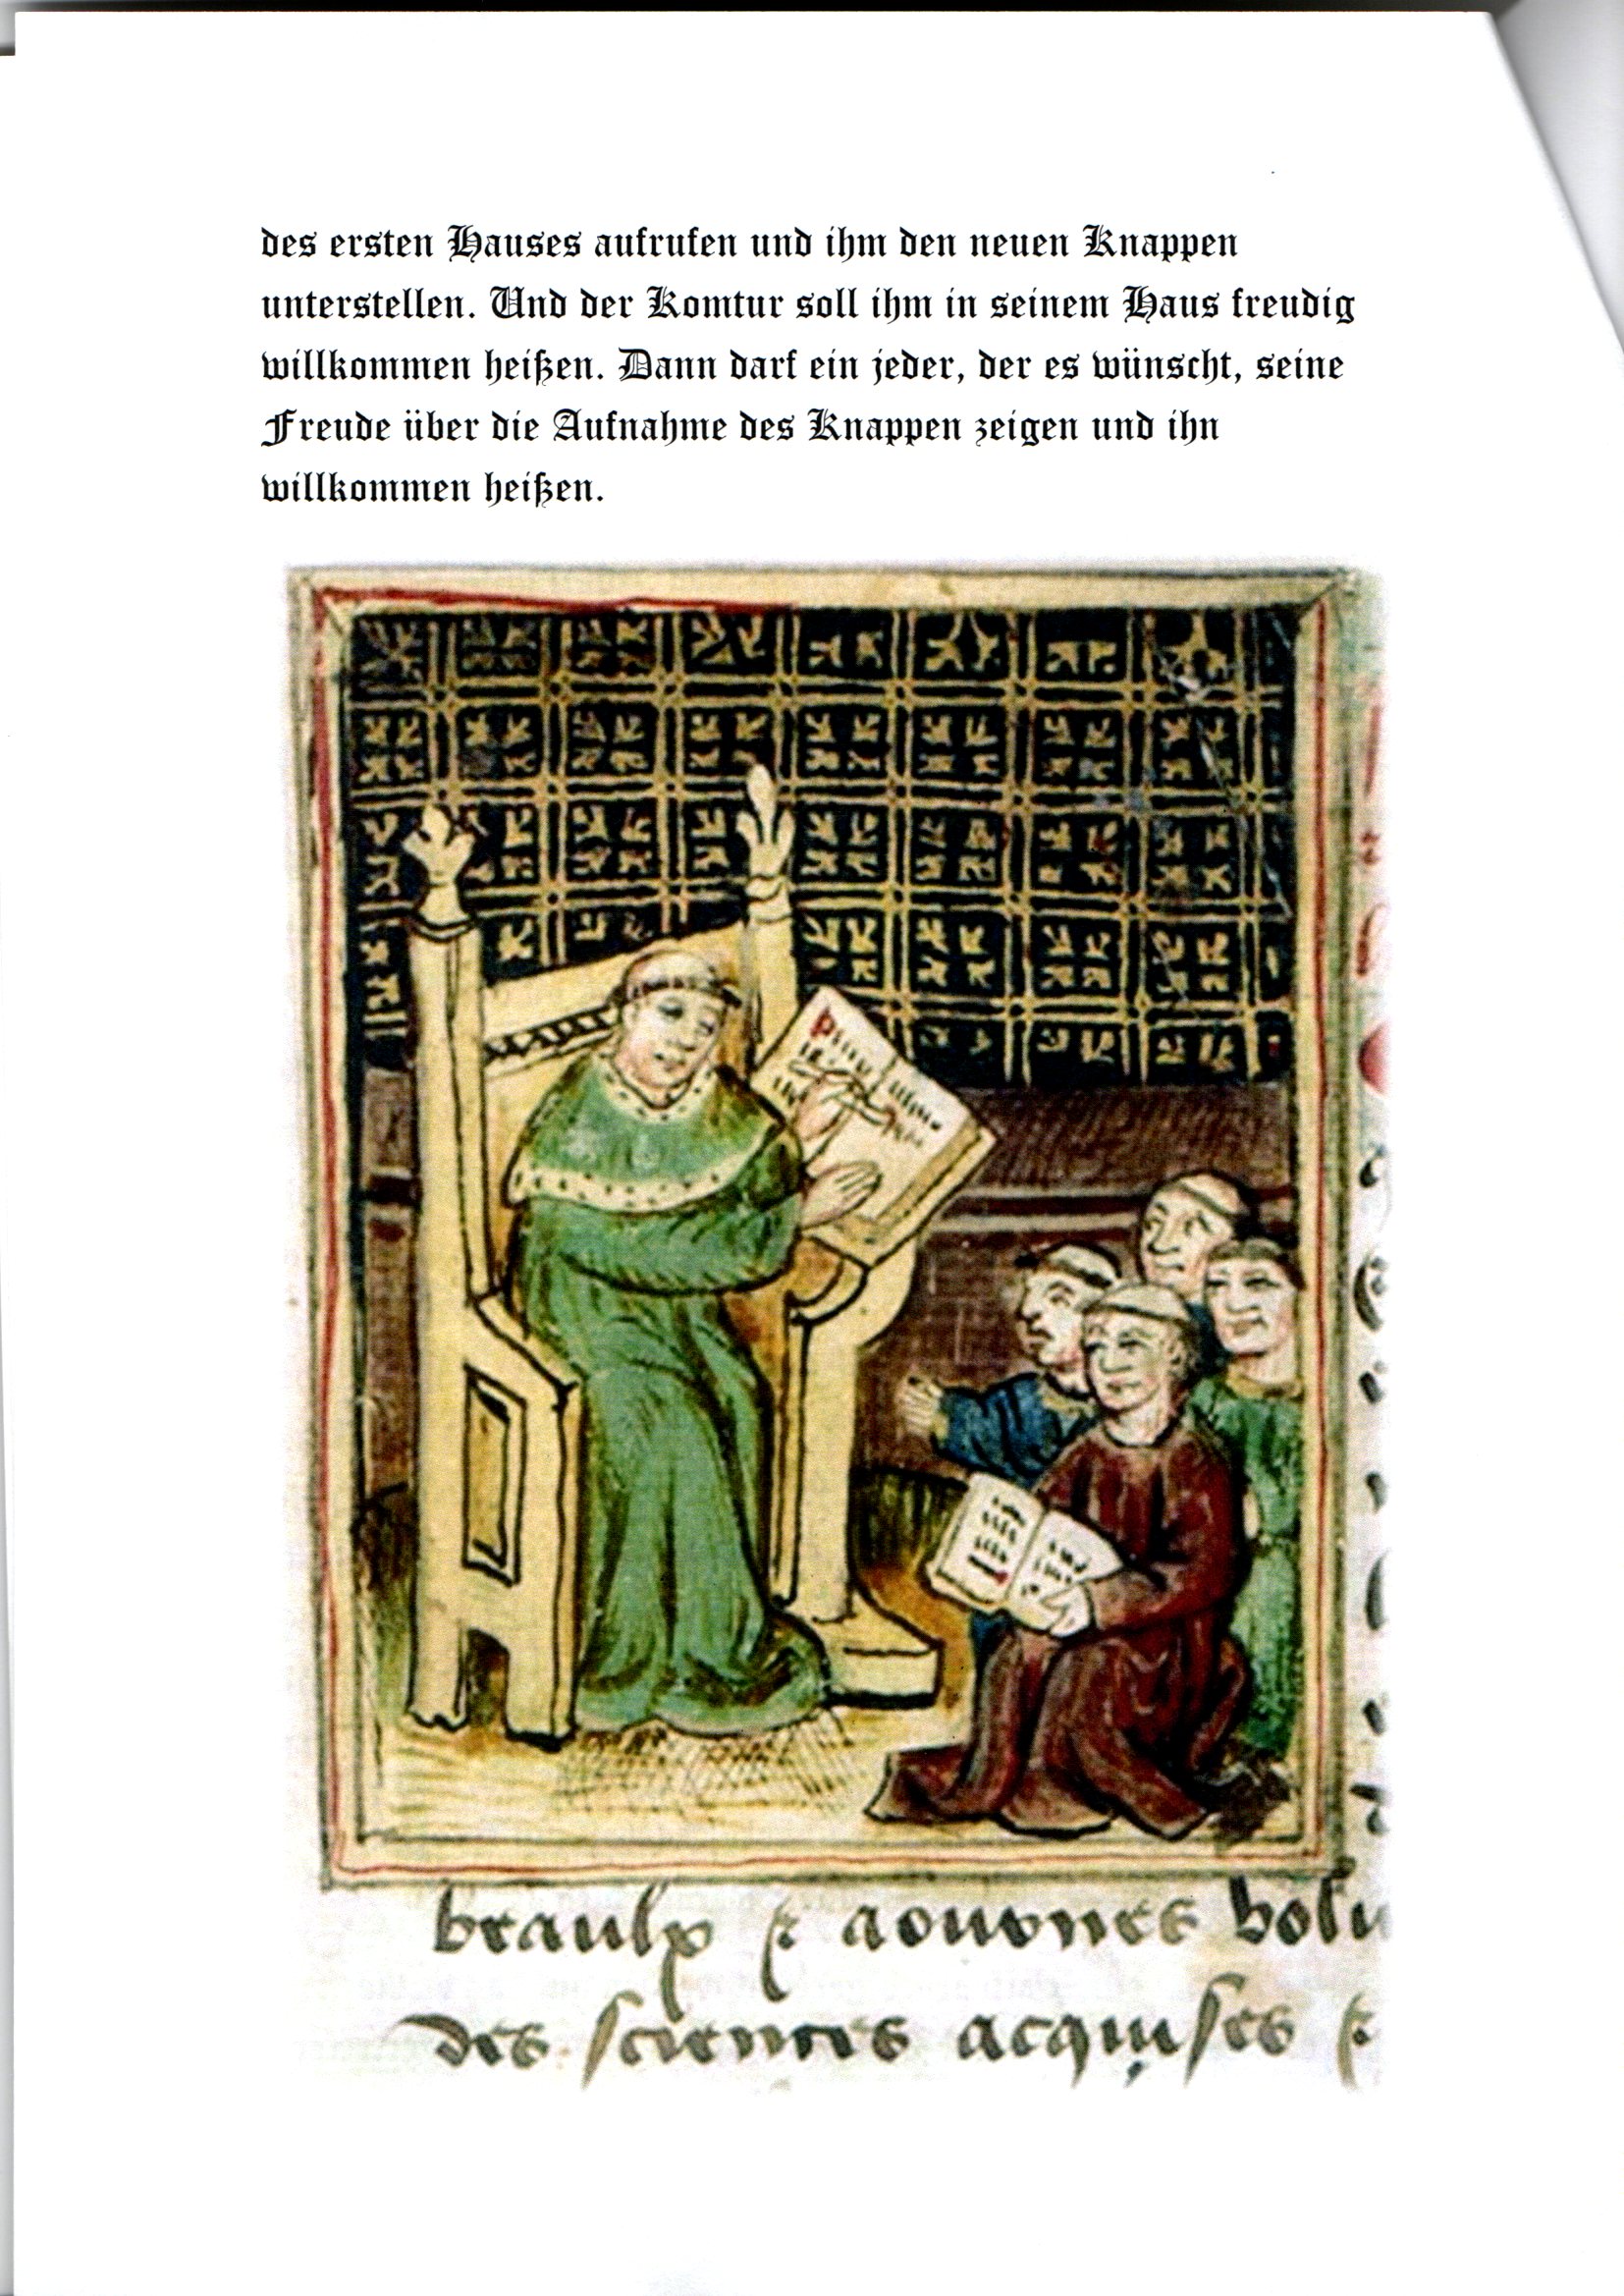 des ersten Hauses aufrufen und ihm den neuen Knappen
unterstellen. Und der Komtur soll ihm in seinem Haus freudig
willkommen heißen. Dann darf ein jeder, der es wünscht, seine
Freude über die Aufnahme des Knappen zeigen und ihn
willkommen heißen.
des sciences acquises